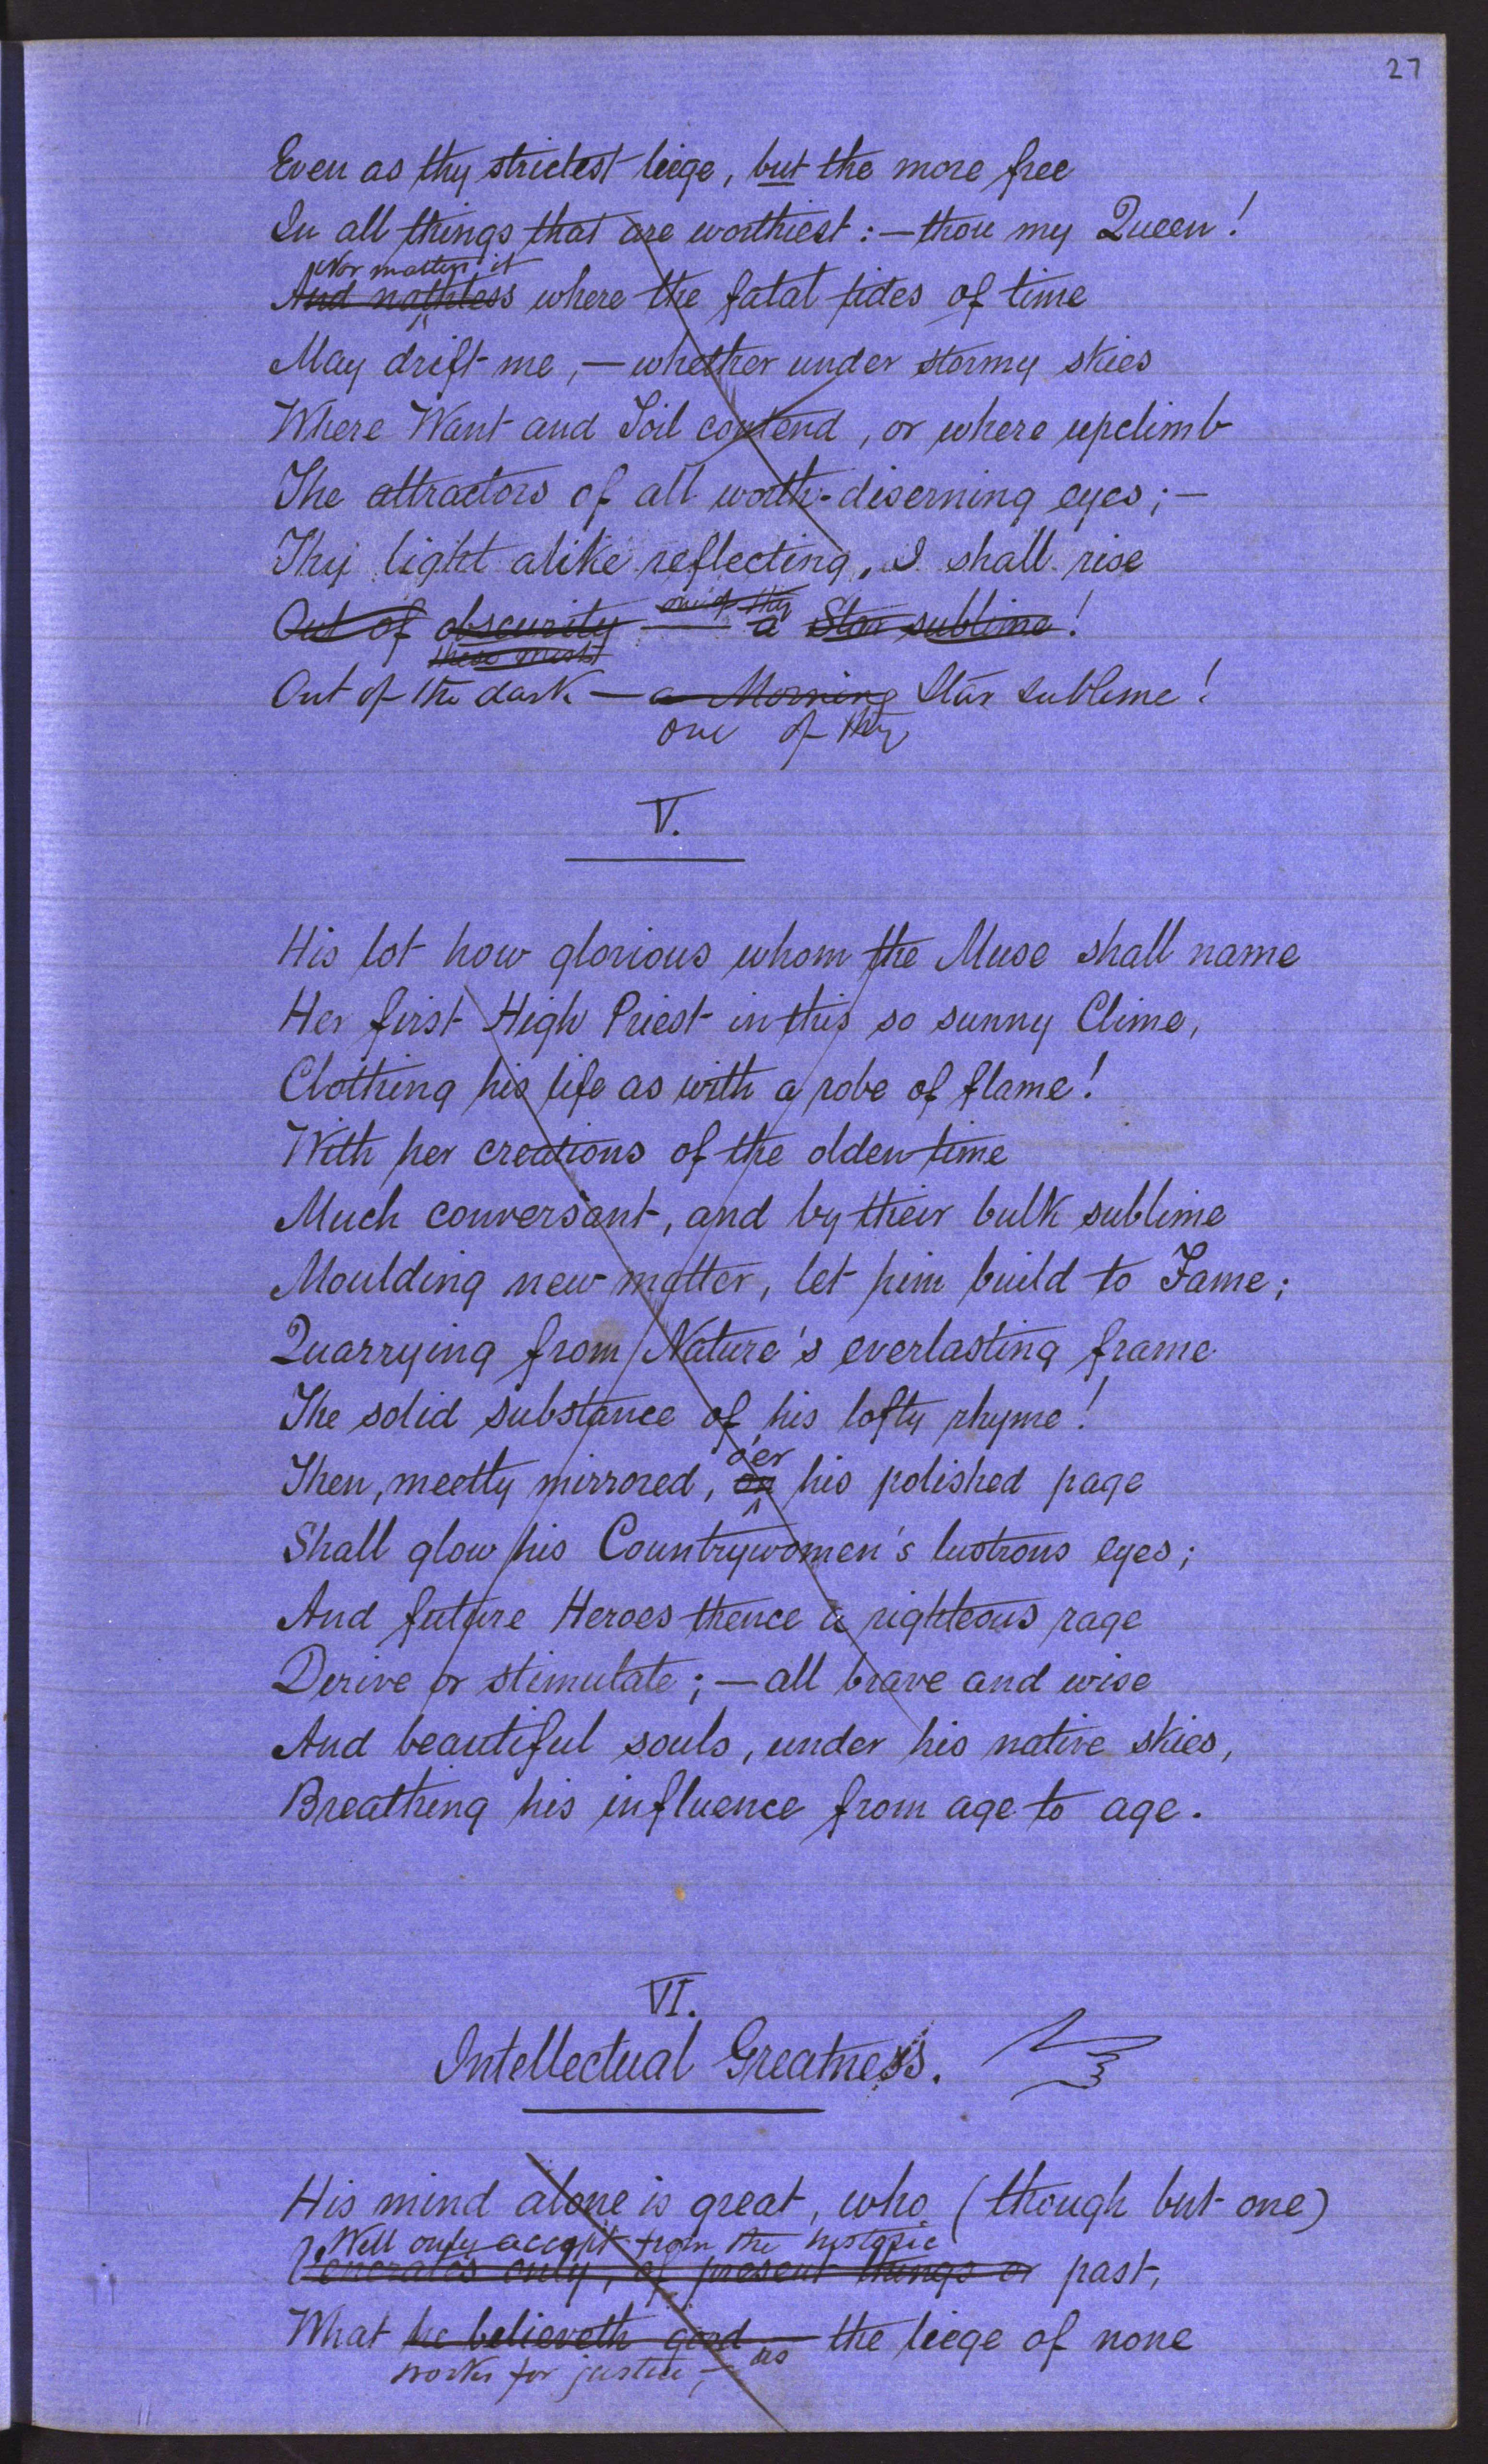 27
Even as thy strictest liege, but the more free
In all things that are worthiest: — thou my Queen!
Nor matters it
And nathless where the fatal tides of time
May drift me, — whether under stormy skies
Where Want and Toil contend, or where upclimb
The attractors of all worth-discerning eyes; —
Thy light alike reflecting, I shall rise
one of thy
Out of obscurity — a Star sublime!
these mists
Out of the dark — a Morning Star sublime!
one of thy
V.
His lot how glorious whom the Muse shall name
Her first High Priest in this so sunny Clime,
Clothing his life as with a robe of flame!
With her creations of the olden time
Much conversant, and by their bulk sublime
Moulding new matter, let him build to Fame;
Quarrying from Nature's everlasting frame
The solid substance of his lofty rhyme!
o'er
Then, meetly mirrored, on his polished page
Shall glow his Countrywomen's lustrous eyes;
And future Heroes thence a righteous rage
Derive or stimulate; — all brave and wise
And beautiful souls, under his native skies,
Breathing his influence from age to age.
VI.
Intellectual Greatness.
His mind alone is great, who (though but one)
Will only accept from the historic
Venerates only, of present things or past,
What he believeth good, — the liege of none
works for justice, — as